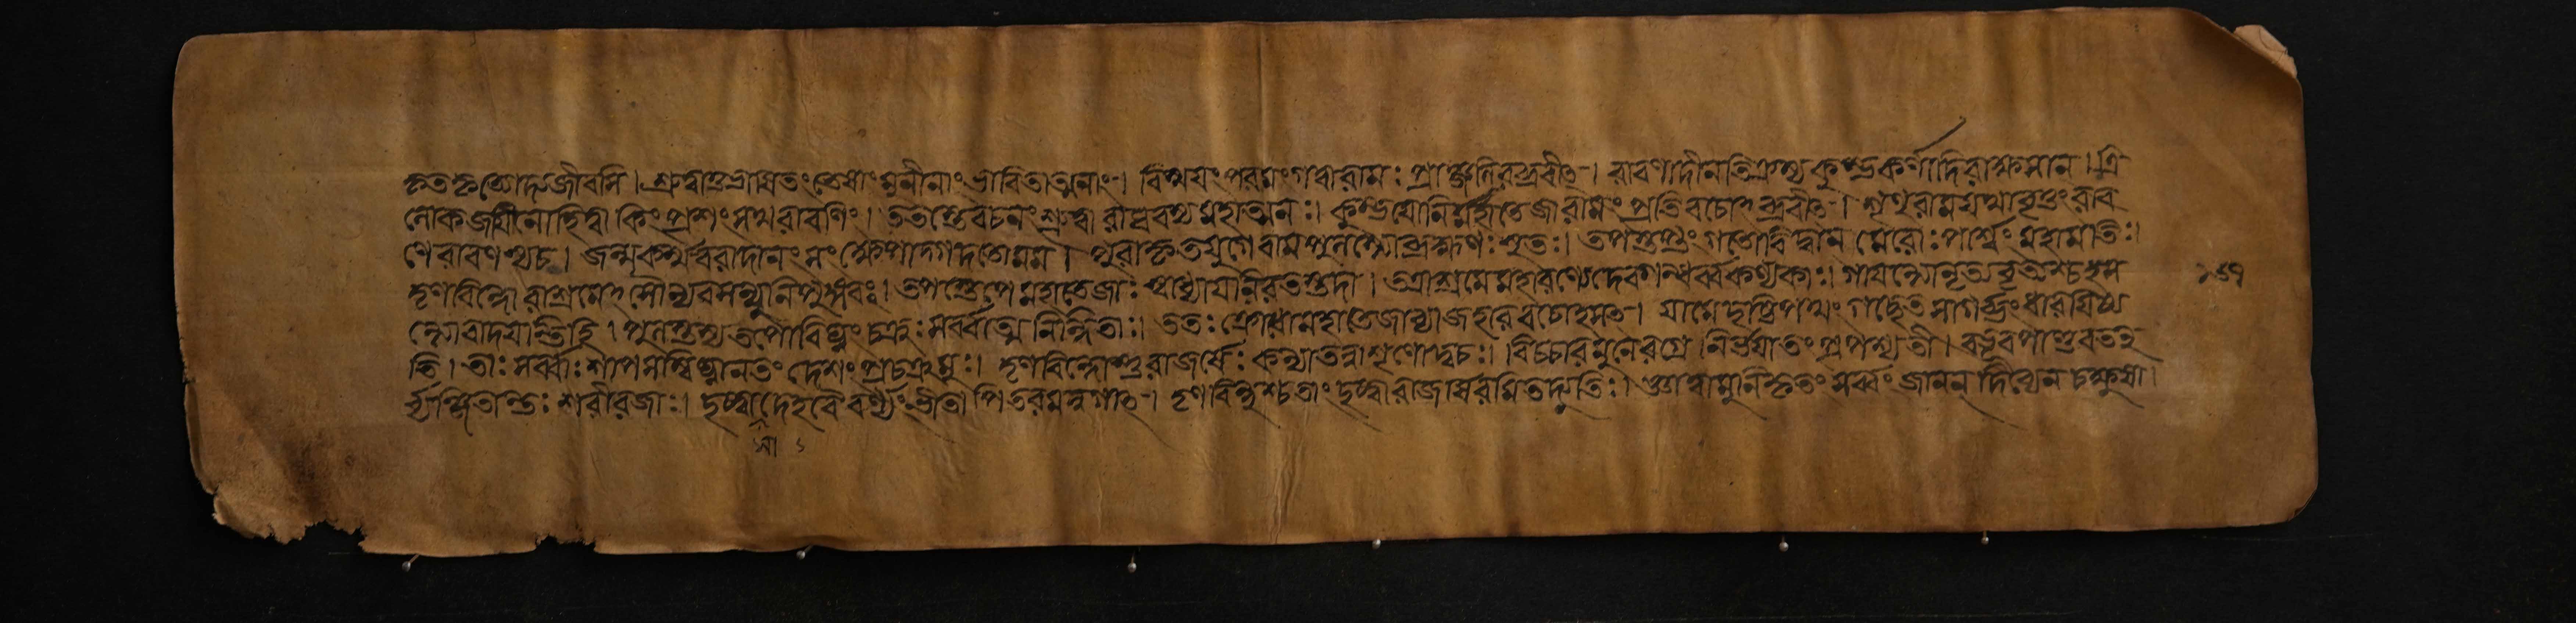 কৃতকৃত্যোঽদ্য জীবসি। শ্রুত্বা তু ভাষিতং তেষাং মুনীনাং ভাবিতাত্মনাং। বিস্ময়ং পরমং গত্বা রামঃ প্রাঞ্জলিরব্রবীৎ। রাবণাদীনতিক্রম্য কুম্ভকর্ণাদিরাক্ষসান। ত্রি
লোকজয়িনো হিত্বা কিং প্রশংসথ রাবণিং। ততস্তদ্বচনং শ্রুত্বা রাঘবস্য মহাত্মনঃ। কুম্ভযোনির্ম্মহাতেজা রামং প্রতি বচোঽব্রবীৎ। শৃণু রাম যথাবৃত্তং রাব
ণে রাবণস্য চ। জন্ম কর্ম্ম বরাদানং সংক্ষেপাদ্গদতো মম। পুরা কৃতযুগে রাম পুলস্ত্যো ব্রহ্মণঃ সুতঃ। তপস্তপ্তুং গতো বিদ্বান মেরোঃ পার্শ্বং মহামতিঃ।
তৃণবিন্দোরাশ্রমেঽসৌ ন্যবসন্মুনিপুঙ্গবঃ। তপস্তেপে মহাতেজাঃ স্বাধ্যায়নিরতস্তদা। আশ্রমে মহারণ্যে দেবগন্ধর্ব্বকন্যকাঃ। গায়ন্ত্যো হস
ন্ত্যো বাদয়ন্তি হি। পুলস্ত্যস্য তপোবিঘ্নং চক্রুঃ সর্ব্বা অনিন্দিতাঃ। ততঃ ক্রোধান্মহাতেজা ব্যাজহার বচো মহৎ। যা মে দৃষ্টিপথং গচ্ছেৎ সা গর্ভং ধারয়িষ্য
তি। তাঃ সর্ব্বাঃ শাপসম্বিগ্না ন তং দেশং প্রচক্রমুঃ। তৃণবিন্দোস্তু রাজর্ষেঃ কন্যা তন্নাশৃণোদ্বচঃ। বিচচার মুনেরগ্রে নির্ভয়া তং প্রপশ্যতী। বভূব পাণ্ডুরতনু
র্ব্যঞ্জিতান্তঃশরীরজাঃ। দৃষ্ট্বা দেহবৈবর্ণ্যং ভীতা পিতরমন্বগাৎ। তৃণবিন্দুশ্চ তাং দৃষ্ট্বা রাজর্ষিরমিতদ্যুতিঃ। ধ্যাত্বা মুনিকৃতং সর্ব্বং জানন্ দিব্যেন চক্ষুষা।
সা